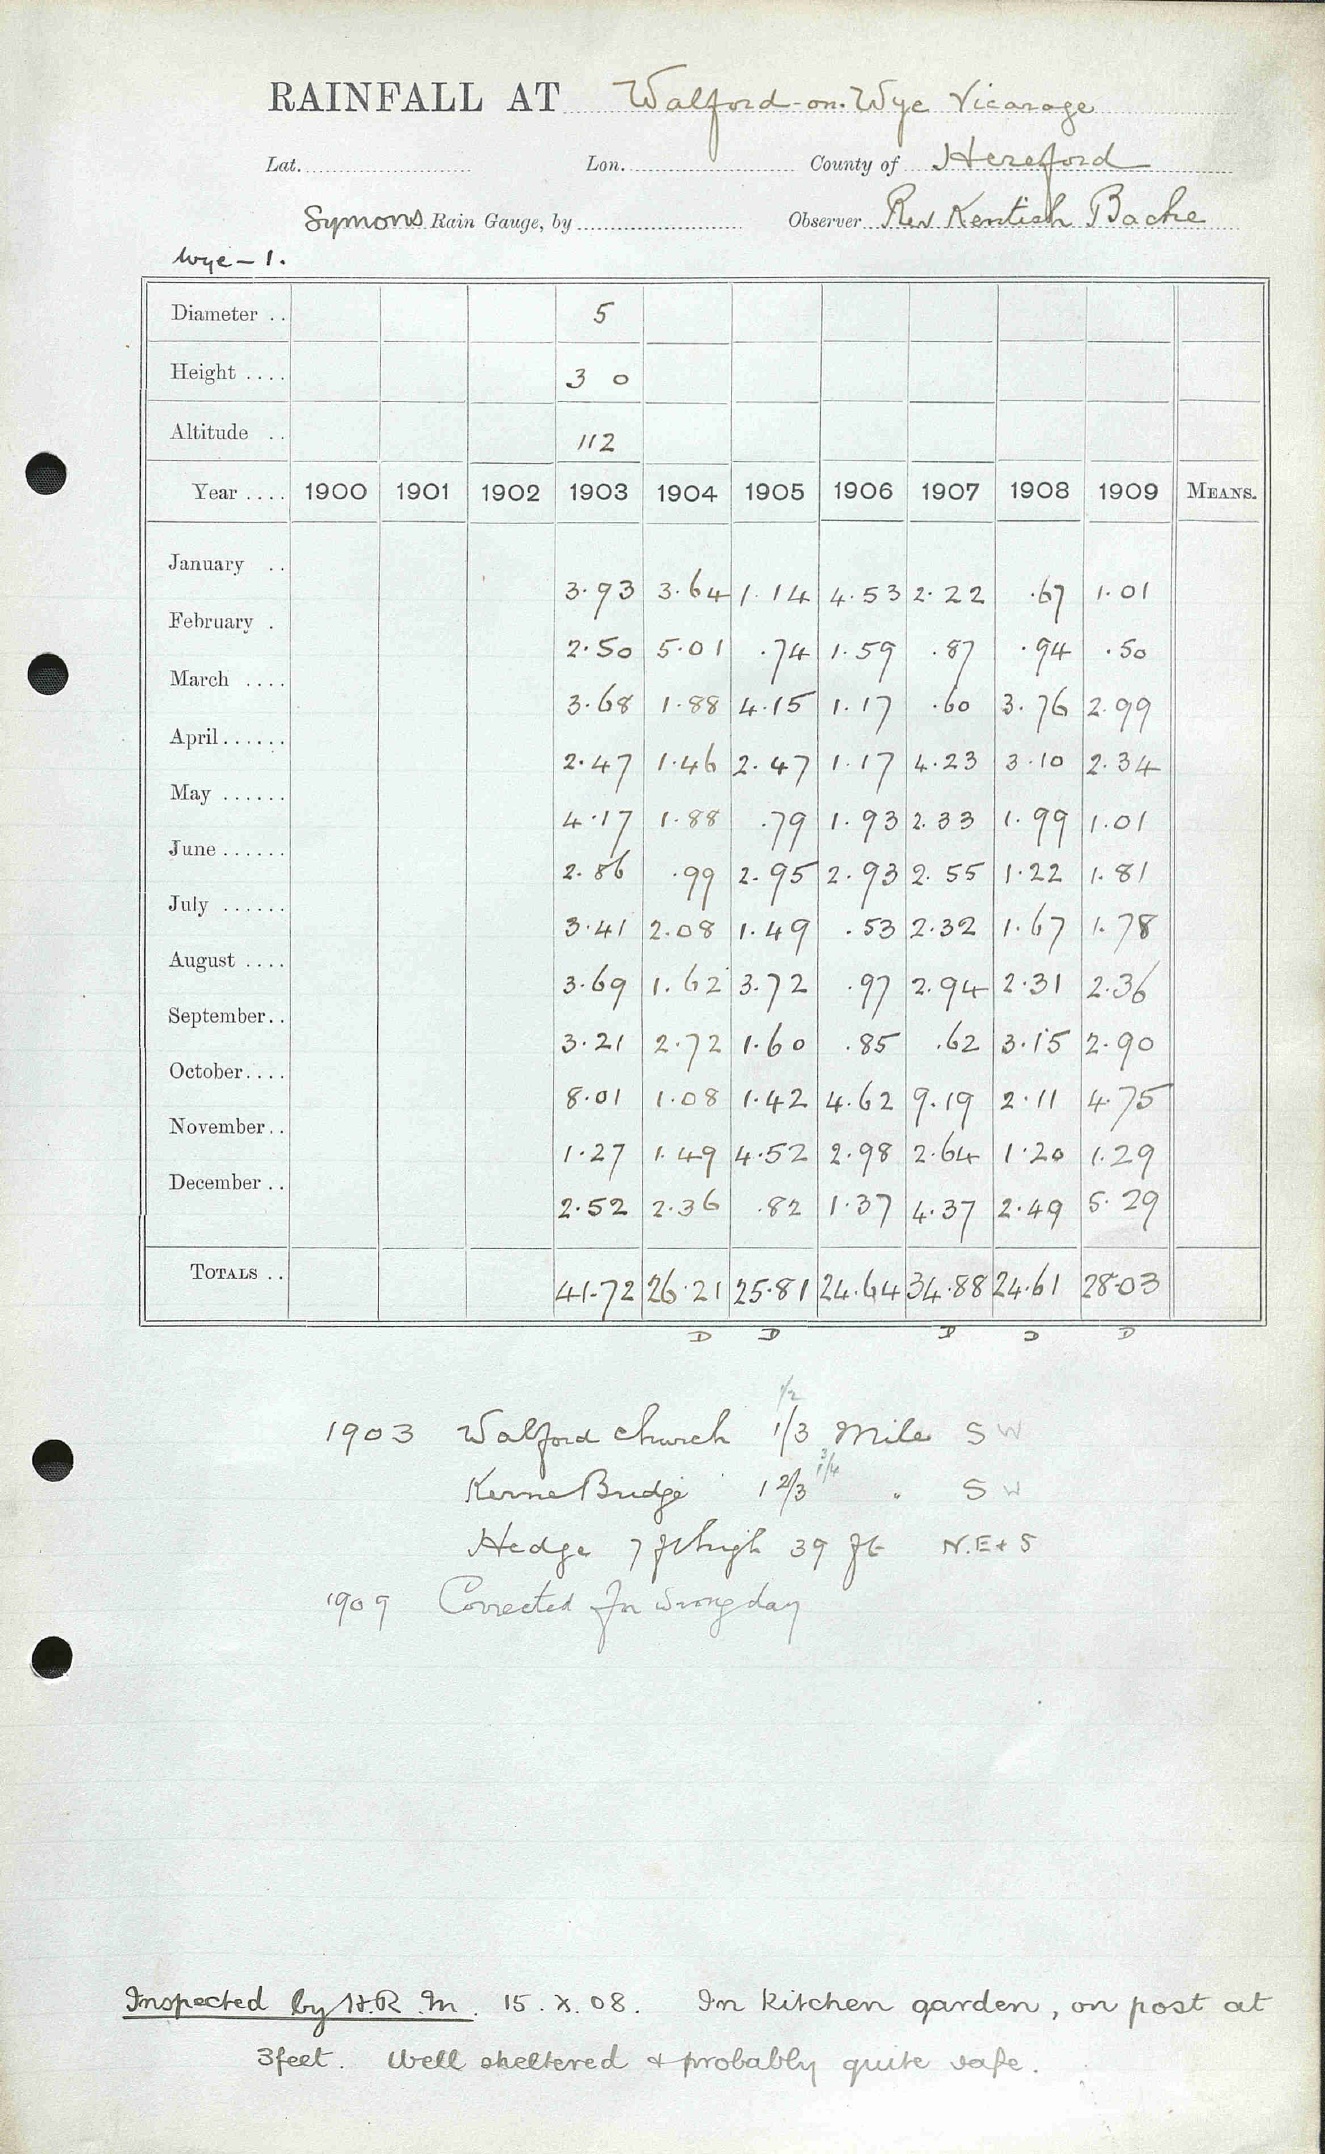 RAINFALL AT Walford-on-Wye Vicarage
Lat. Lon. County of Hereford
Symons Rain Gauge, by Observer Rev Kentish Bache
Wye – 1.
Diameter .. 5
Height .... 3 0
Altitude .. 112
Year .... 1900 1901 1902 1903 1904 1905 1906 1907 1908 1909 MEANS.
January .. 3.93 3.64 1.14 4.53 2.22 .67 1.01
February . 2.50 5.01 .74 1.59 .87 .94 .50
March .... 3.68 1.88 4.15 1.17 .60 3.76 2.99
April...... 2.47 1.46 2.47 1.17 4.23 3.10 2.34
May ...... 4.17 1.88 .79 1.93 2.33 1.99 1.01
June ...... 2.86 .99 2.95 2.93 2.55 1.22 1.81
July ...... 3.41 2.08 1.49 .53 2.32 1.67 1.78
August .... 3.69 1.62 3.72 .97 2.94 2.31 2.36
September.. 3.21 2.72 1.60 .85 .62 3.15 2.90
October.... 8.01 1.08 1.42 4.62 9.19 2.11 4.75
November.. 1.27 1.49 4.52 2.98 2.64 1.20 1.29
December .. 2.52 2.36 .82 1.37 4.37 2.49 5.29
TOTALS .. 41.72 26.21 25.81 24.64 34.88 24.61 28.03
D D D D D
1/2
1903 Walford Church 1/3 Mile SW
3/4
Kerne Bridge 1 2/3 " SW
Hedge 7 ft high 39 ft N.E + S
1909 Corrected for wrong day
Inspected by H.R.M. 15.X.08. In kitchen garden, on post at
3 feet. Well sheltered + probably quite safe.